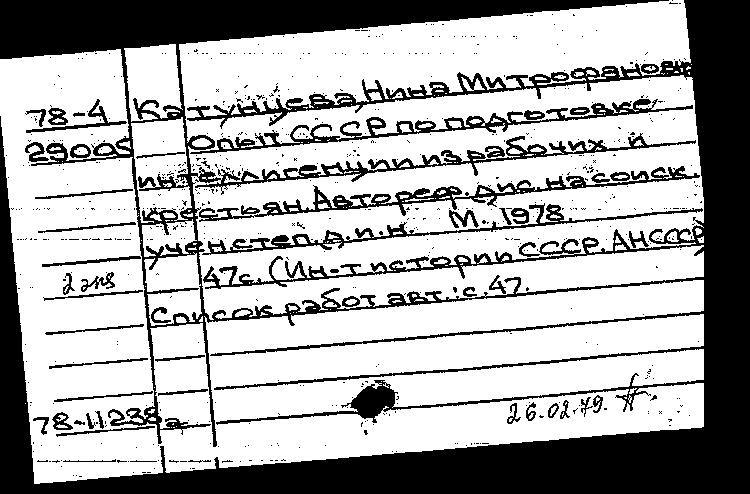 78-4 Катунцева, Нина Митрофановна
29005 Опыт СССР по подготовке
интеллигенции из рабочих и
крестьян. Автореф. дис. на соиск.
учен. степ. д. и. н. М., 1978.
2 экз 47 с. (Ин-т истории СССР. АН СССР)
Список работ авт.: с. 47.
78-11238а
26.02.79.